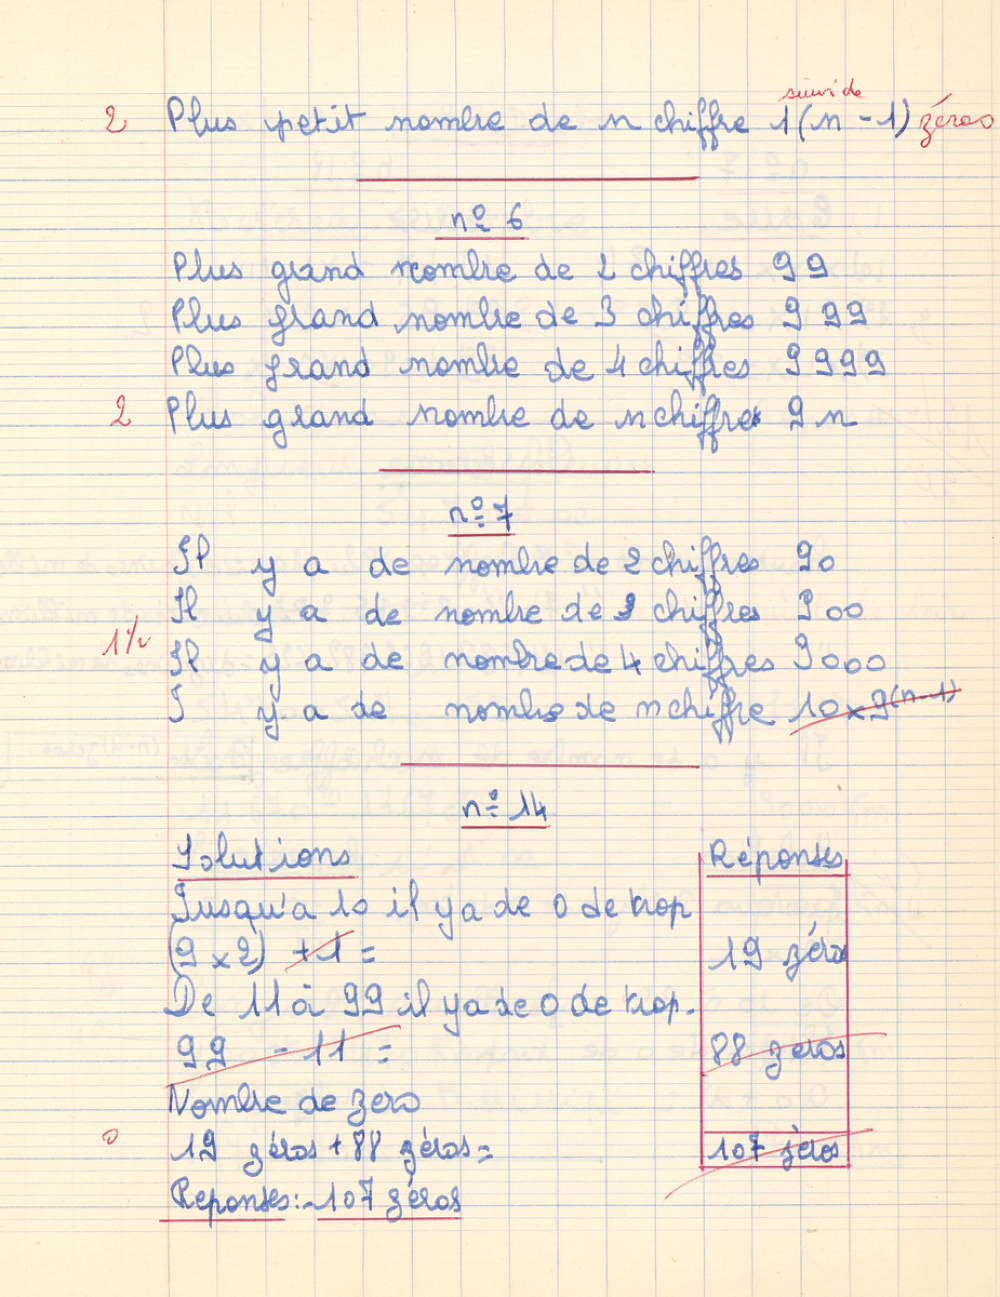 suivi de
2 Plus petit nombre de n chiffre 1(n - 1) zéros
nº 6
Plus grand nombre de 2 chiffres 99
Plus grand nombre de 3 chiffres 9 99
Plus grand nombre de 4 chiffres 9999
2 Plus grand nombre de n chiffre 9 n
nº 7
Il y a de nombre de 2 chiffres 90
Il y a de nombre de 3 chiffres 900
1½ Il y a de nombre de 4 chiffres 9000
I y a de nombre de n chiffre 10 x 9(n-1)
nº 14
Solutions Réponses
Jusqu'a 10 il y a de 0 de trop
(9 x 2) + 1 = 19 zéro
De 11 à 99 il y a de 0 de trop.
99 - 11 = 88 zeros
Nombre de zero
0 19 zéros + 88 zéros = 107 zéros
Reponses:- 107 zéros